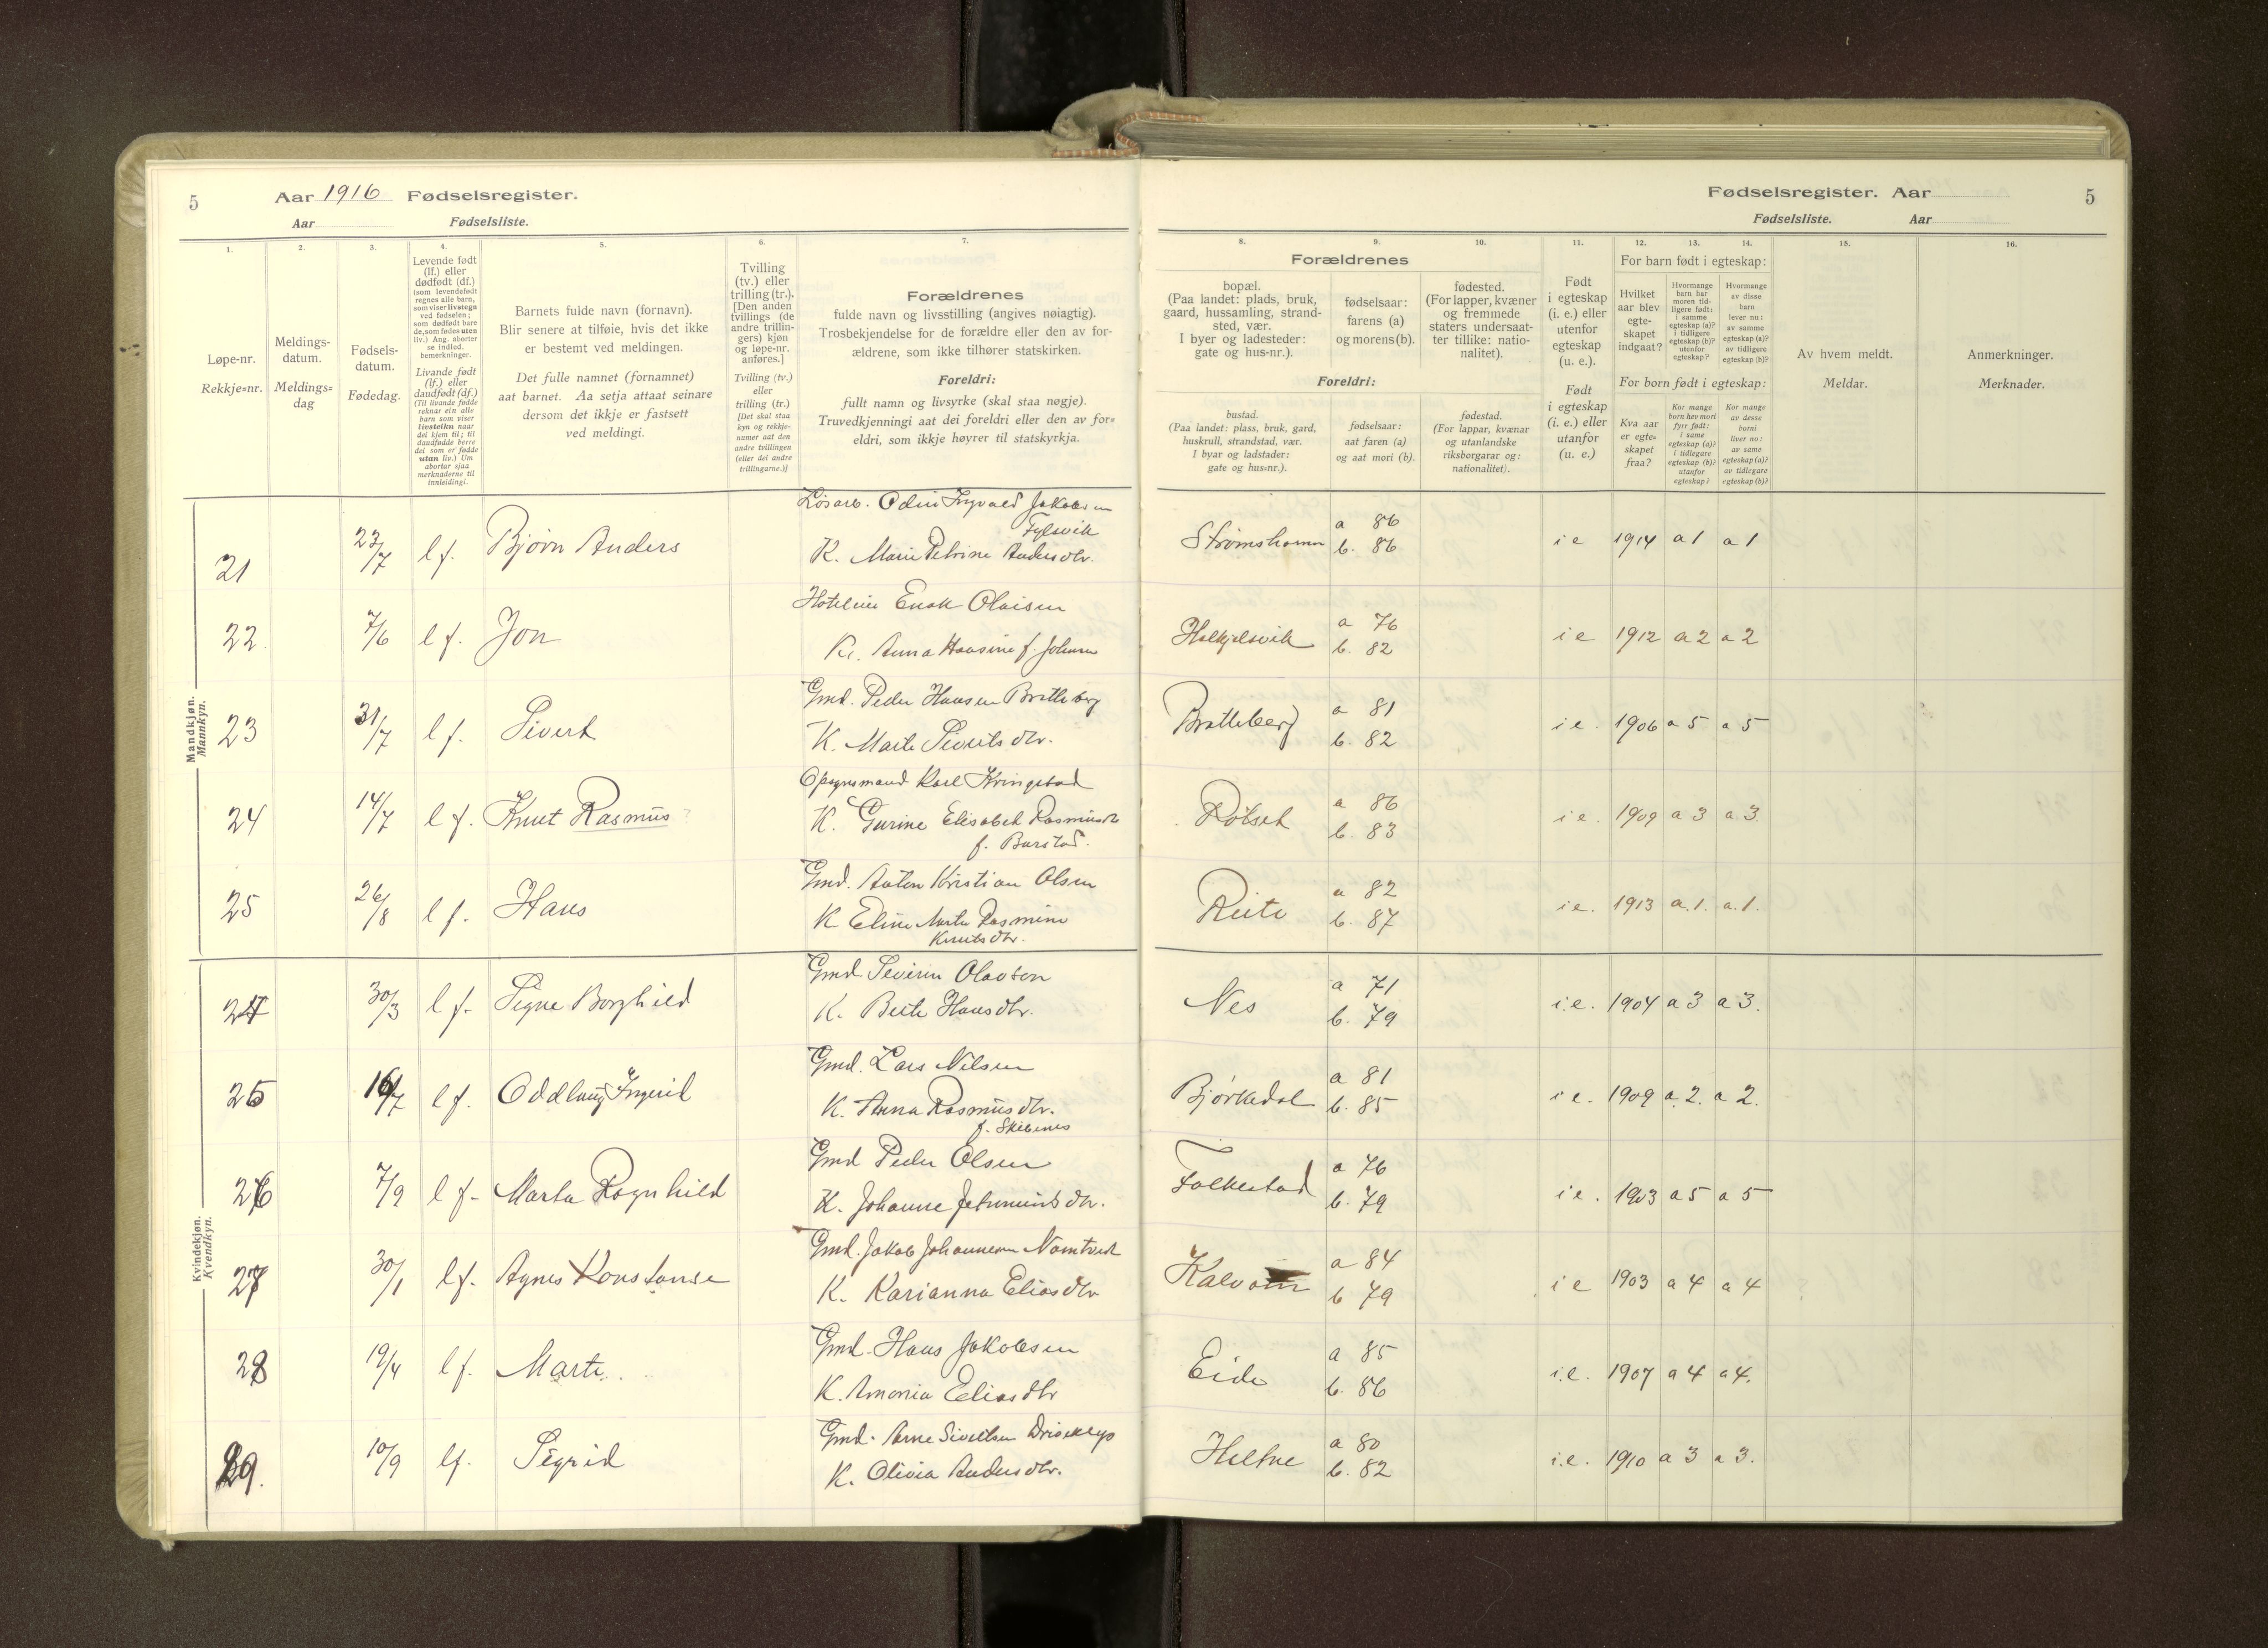 5
Aar 1916 Fødselsregister.
Aar Fødselsliste.
1.
2.
3.
4.
5.
6.
7.
Løpe-nr.
Rekkje=nr.
Meldings-
datum.
Meldings=
dag
Fødsels-
datum.
Fødedag.
Levende født
(lf.) eller
dødfødt (df.)
(som levendefødt
regnes alle barn,
som viser livstegn
ved fødselen;
som dødfødt bare
de, som fødes uten
liv.) Ang. aborter
se indled.
bemerkninger.
Livande født
(lf.) eller
daudfødt (df.)
(Til livande fødde
reknar ein alle
barn som viser
livsteikn naar
dei kjem til; til
daudfødde berre
dei som er fødde
utan liv.) Um
abortar sjaa
merknaderne til
innleidingi.
Barnets fulde navn (fornavn).
Blir senere at tilføie, hvis det ikke
er bestemt ved meldingen.
Det fulle namnet (fornamnet)
aat barnet. Aa setja attaat seinare
dersom det ikkje er fastsett
ved meldingi.
Tvilling
(tv.) eller
trilling (tr.).
[Den anden
tvillings (de
andre trillin-
gers) kjøn
og løpe-nr.
anføres.]
Tvilling (tv.)
eller
trilling (tr.)
[Det skal staa
kyn og rekkje-
numer aat den
andre tvillingen
(eller dei andre
trillingarne.)]
Forældrenes
fulde navn og livsstilling (angives nøiagtig).
Trosbekjendelse for de forældre eller den av for-
ældrene, som ikke tilhører statskirken.
Foreldri:
fullt namn og livsyrke (skal staa nøgje).
Truvedkjenningi aat dei foreldri eller den av for=
eldri, som ikkje høyrer til statskyrkja.
Mandkjøn.
Mannkyn.
21 23/7 lf. Bjørn Anders
Løsarb. Odin Ingvald Jakobsen
K. Marie Petrine Andersdtr.
22 7/6 lf. Jon
Enok Olaisen
Anna Hansine f. Johnsen
23 31/7 lf. Sivert
Gmd. Peder Hansen Bratteberg
K. Marte Sivertsdtr.
24 14/7 lf. Knut Rasmus ?
Opsynsmand Karl Kringstad
K. Gurine Elisabet Rasmusdtr
f. Barstad.
25 26/8 lf. Hans
Gmd. Anton Kristian Olsen
K Eline Marte Rasmine
Knutsdtr.
Kvindekjøn.
Kvendkyn.
24 30/3 lf. Signe Borghild
Gmd. Severin Olavson
K. Berte Hansdtr.
25 16/7 lf. Oddlaug Ingerid
Gmd. Lars Nilsen
K. Anna Rasmusdtr.
f. Skibenes
26 7/9 lf. Marta Ragnhild
Gmd Peder Olsen
K. Johanne Jetmundsdtr.
27 30/1 lf. Agnes Konstanse
Gmd. Jakob Johannesen
K. Karianna Eliasdtr
28 19/4 lf. Marte
Gmd. Hans Jakobsen
K. Amonia Eliasdtr
29. 10/9 lf. Sigrid
Gmd. Arne Sivertsen
K. Olivia Andersdtr.
Fødselsregister. Aar 5
Fødselsliste. Aar
8.
9.
10.
11.
12.
13.
14.
15.
16.
Forældrenes
bopæl.
(Paa landet: plads, bruk,
gaard, hussamling, strand-
sted, vær.
I byer og ladesteder:
gate og hus-nr.).
fødselsaar:
farens (a)
og morens (b).
fødested.
(For lapper, kvæner
og fremmede
staters undersaat-
ter tillike: natio-
nalitet).
Foreldri:
bustad.
(Paa landet: plass, bruk, gard,
huskrull, strandstad, vær.
I byar og ladstader:
gate og hus=nr.).
fødselsaar:
aat faren (a)
og aat mori (b).
fødestad.
(For lappar, kvænar
og utanlandske
riksborgarar og:
nationalitet).
Født
i egteskap
(i. e.) eller
utenfor
egteskap
(u. e.).
Født
i egteskap
(i. e.) eller
utanfor
(u. e.)
For barn født i egteskap:
Hvilket
aar blev
egte-
skapet
indgaat?
Hvormange
barn har
moren tid-
ligere født:
i samme
egteskap (a)?
i tidligere
egteskap (b)?
utenfor
egteskap?
Hvormange
av disse
barn
lever nu:
av samme
egteskap (a)?
av tidligere
egteskap (b)?
For born født i egteskap:
Kva aar
er egte=
skapet
fraa?
Kor mange
born hev mori
fyrr født:
i same
egteskap (a)?
i tidlegare
egteskap (b)?
utanfor
egteskap?
Kor mange
av desse
borni
liver no:
av same
egteskap (a)?
av tidlegare
egteskap (b)?
Av hvem meldt.
Meldar.
Anmerkninger.
Merknader.
Strømshamn a 86 b. 86 i e 1914 a 1 a 1
Helkjelsvik a 76 b. 82 i e 1912 a 2 a 2
Bratteberg a 81 b. 82 i e. 1906 a 5 a 5
Rotset a 86 b. 83 i e. 1909 a 3 a 3
Reite a 82 b. 87 i e. 1913 a. 1. a. 1.
Nes a 71 b. 79 i.e. 1904 a 3 a 3.
Bjørkedal a 81 b. 85 i e. 1909 a 2. a 2.
Folkestad a 76 b. 79 i e. 1903 a 5 a 5
a 84 b 79 i e 1903 a 4 a 4
Eide a 85 b. 86 i.e. 1907 a 4 a 4.
Heltne a 80 b. 82 i.e. 1910 a 3 a 3.